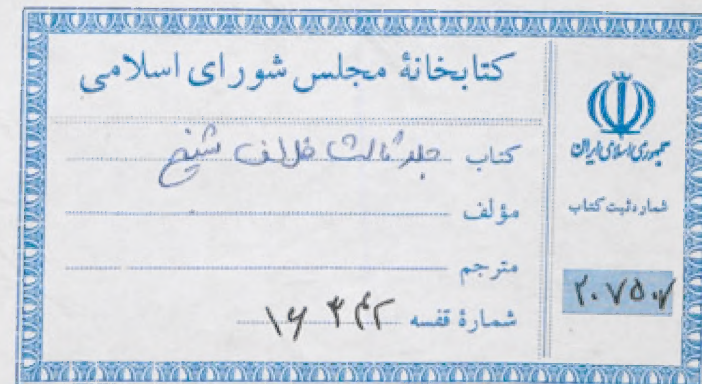 کتابخانهٔ مجلس شورای اسلامی
کتاب جلد ثالث خلاف شیخ
مؤلف
مترجم
شمارهٔ قفسه ۱۶۳۴۲
جمهوری اسلامی ایران
شماره ثبت کتاب
۲۰۷۵۰۷